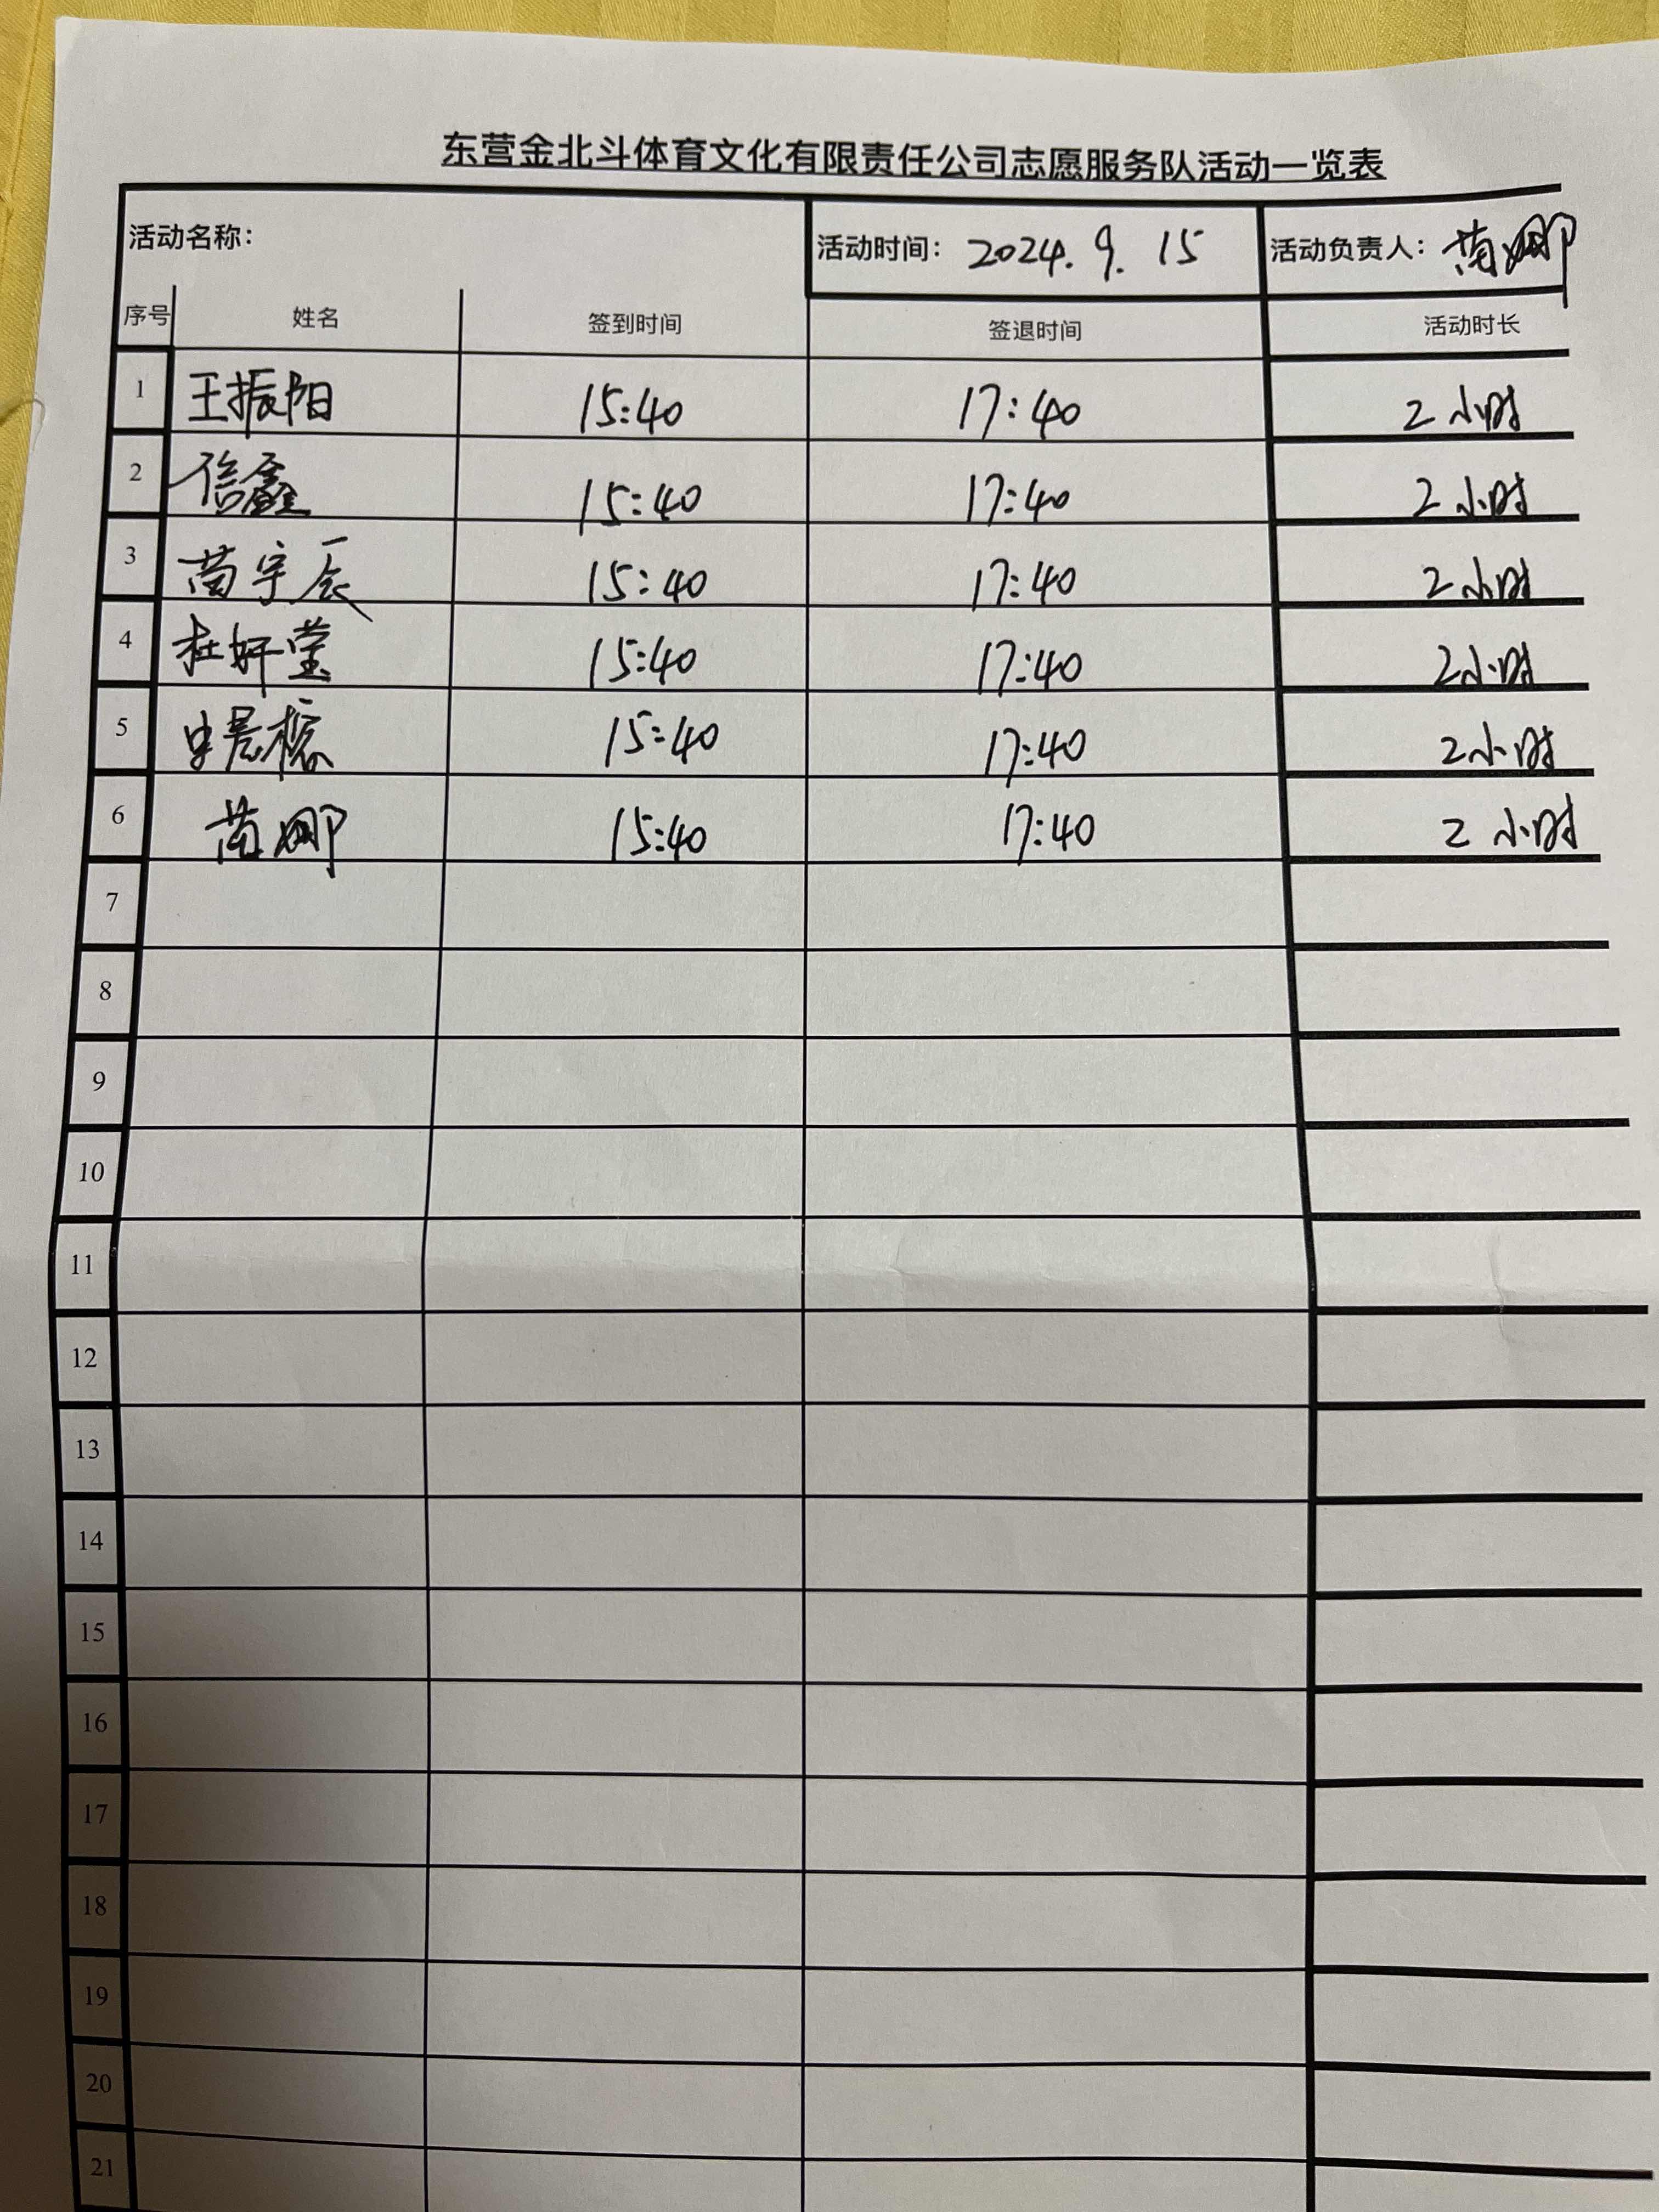 东营金北斗体育文化有限责任公司志愿服务队活动一览表
活动名称： 活动时间： 2024.9.15 活动负责人： 苗娜
序号 姓名 签到时间 签退时间 活动时长
1 王振阳 15:40 17:40 2小时
2 信鑫 15:40 17:40 2小时
3 苗宇辰 15:40 17:40 2小时
4 杜妍莹 15:40 17:40 2小时
5 15:40 17:40 2小时
6 苗娜 15:40 17:40 2小时
7
8
9
10
11
12
13
14
15
16
17
18
19
20
21